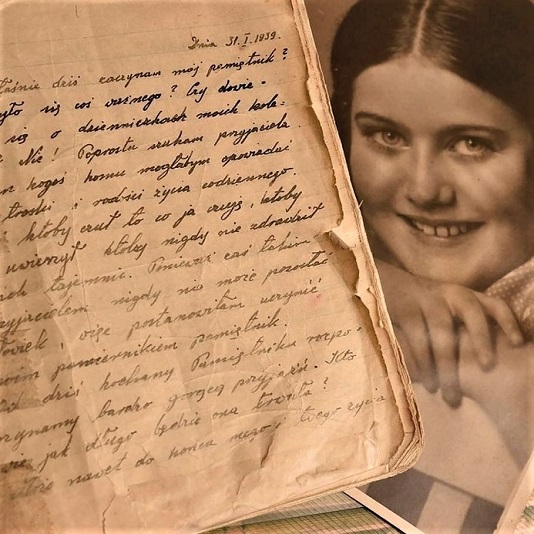 Dnia 31.I.1939.
dziś zaczynam mój pamiętnik?
się coś ważnego? Czy dowie-
się o dzienniczkach moich kole-
Nie! Poprostu szukam przyjaciela.
kogoś komu mogłabym opowiadać
troski i radości życia codziennego.
ktoby czuł to co ja czuję, ktoby
uwierzył, ktoby nigdy nie zdradził
tajemnic. Ponieważ zaś takim
przyjacielem nigdy nie może pozostać
więc postanowiłam uczynić
powiernikiem pamiętnik.
dziś kochany Pamiętniku rozpo-
bardzo gorącą przyjaźń. Kto
wie jak długo będzie ona trwała?
nawet do końca mego i twego życia